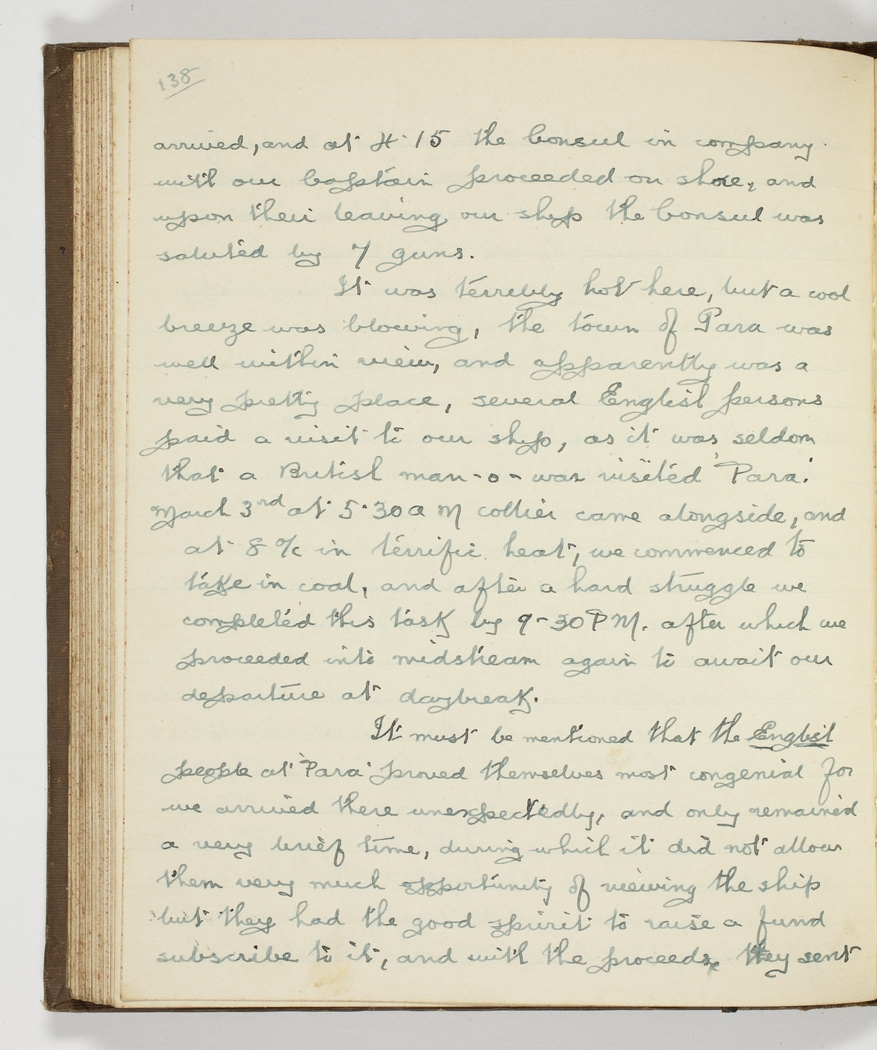 138
arrived, and at 4·15 the Consul in company
with our Captain proceeded on shore, and
upon their leaving our ship the Consul was
saluted by 7 guns.
It was terribly hot here, but a cool
breeze was blowing, the town of Para was
well within view, and apparently was a
very pretty place, several English persons
paid a visit to our ship, as it was seldom
that a British man-o-war visited 'Para.'
March 3rd at 5·30 a M collier came alongside, and
at 8 o/c in terrific heat, we commenced to
take in coal, and after a hard struggle we
completed this task by 9-30 PM. after which we
proceeded into midstream again to await our
departure at daybreak.
It must be mentioned that the English
people at 'Para' proved themselves most congenial for
we arrived there unexpectedly, and only remained
a very brief time, during which it did not allow
them very much opportunity of viewing the ship
but they had the good spirit to raise a fund
subscribe to it, and with the proceeds, they sent